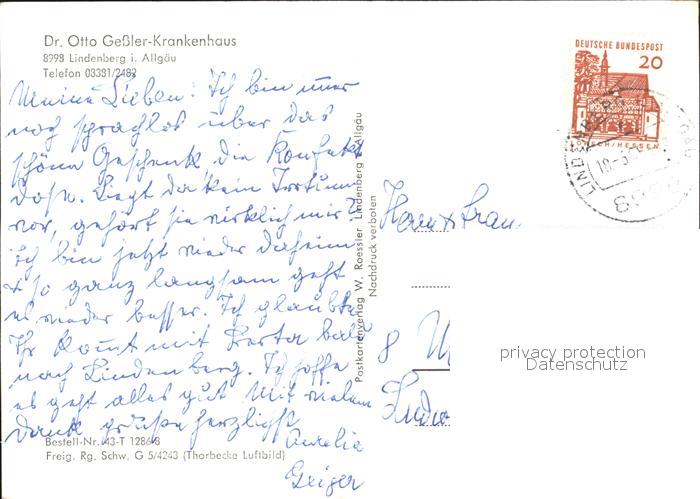 Dr. Otto Geßler-Krankenhaus
8998 Lindenberg i. Allgäu
Telefon 08381/2482
Meine Lieben! Ich bin immer
noch sprachlos über das
schöne Geschenk, die Konfekt
dose. Liegt da kein Irrtum
vor, gehört sie wirklich mir?
Ich bin jetzt wieder daheim
+ so ganz langsam geht
es wieder besser. Ich glaubte
Ihr kommt mit Berta bald
nach Lindenberg. Ich hoffe
es geht alles gut. Mit vielem
Dank grüße herzlichst
Aurelia
Geiger
Bestell-Nr. 43-T 12868
Freig. Rg. Schw. G 5/4243 (Thorbecke Luftbild)
Postkartenverlag W. Roessler Lindenberg i. Allgäu
Nachdruck verboten
DEUTSCHE BUNDESPOST
20
LORSCH/HESSEN
LINDENBERG
Herr + Frau
8 M
privacy protection
Datenschutz